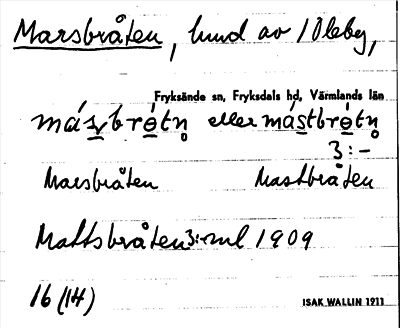 Marsbråten, hmd av 1 Oleby,
Fryksände sn, Fryksdals hd, Värmlands län
másbrọ́tn̥ eller mástbrọ́tn̥
3:-
Marsbråten Mastbråten
Mattsbråten 3:-ml 1909
16 (14)
ISAK WALLIN 1911